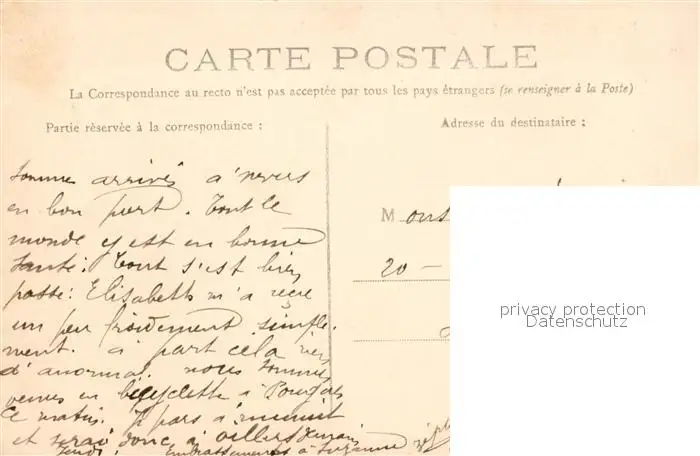 CARTE POSTALE
La Correspondance au recto n'est pas acceptée par tous les pays étrangers (se renseigner à la Poste)
Partie réservée à la correspondance :
Adresse du destinataire :
sommes arrivés a'nevers
en bon port. Tout le
monde y est en bonne
santé: Tout s'est bien
passé: Elisabeth m'a reçu
un peu froidement simple-
ment. a part cela rien
d'anormal. nous sommes
venus en bicyclette à
ce matin. Je pars a
et serai donc à
Embrassements à Suzanne
M
20 —
privacy protection
Datenschutz